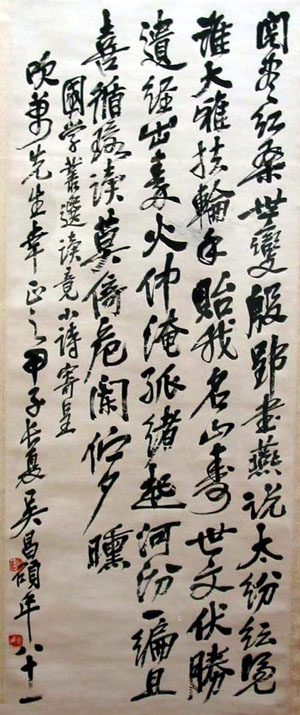 閱盡紅桑世變殷郢書燕說太紛紜覓
誰大雅扶輪手貽我名山壽世文伏勝
遺經出秦火仲淹孤緒起河汾一編且
喜循環讀莫倚危闌佇夕曛
國学叢選讀竟小詩寄呈
吹萬先生幸正之甲子長夏吳昌碩年八十一